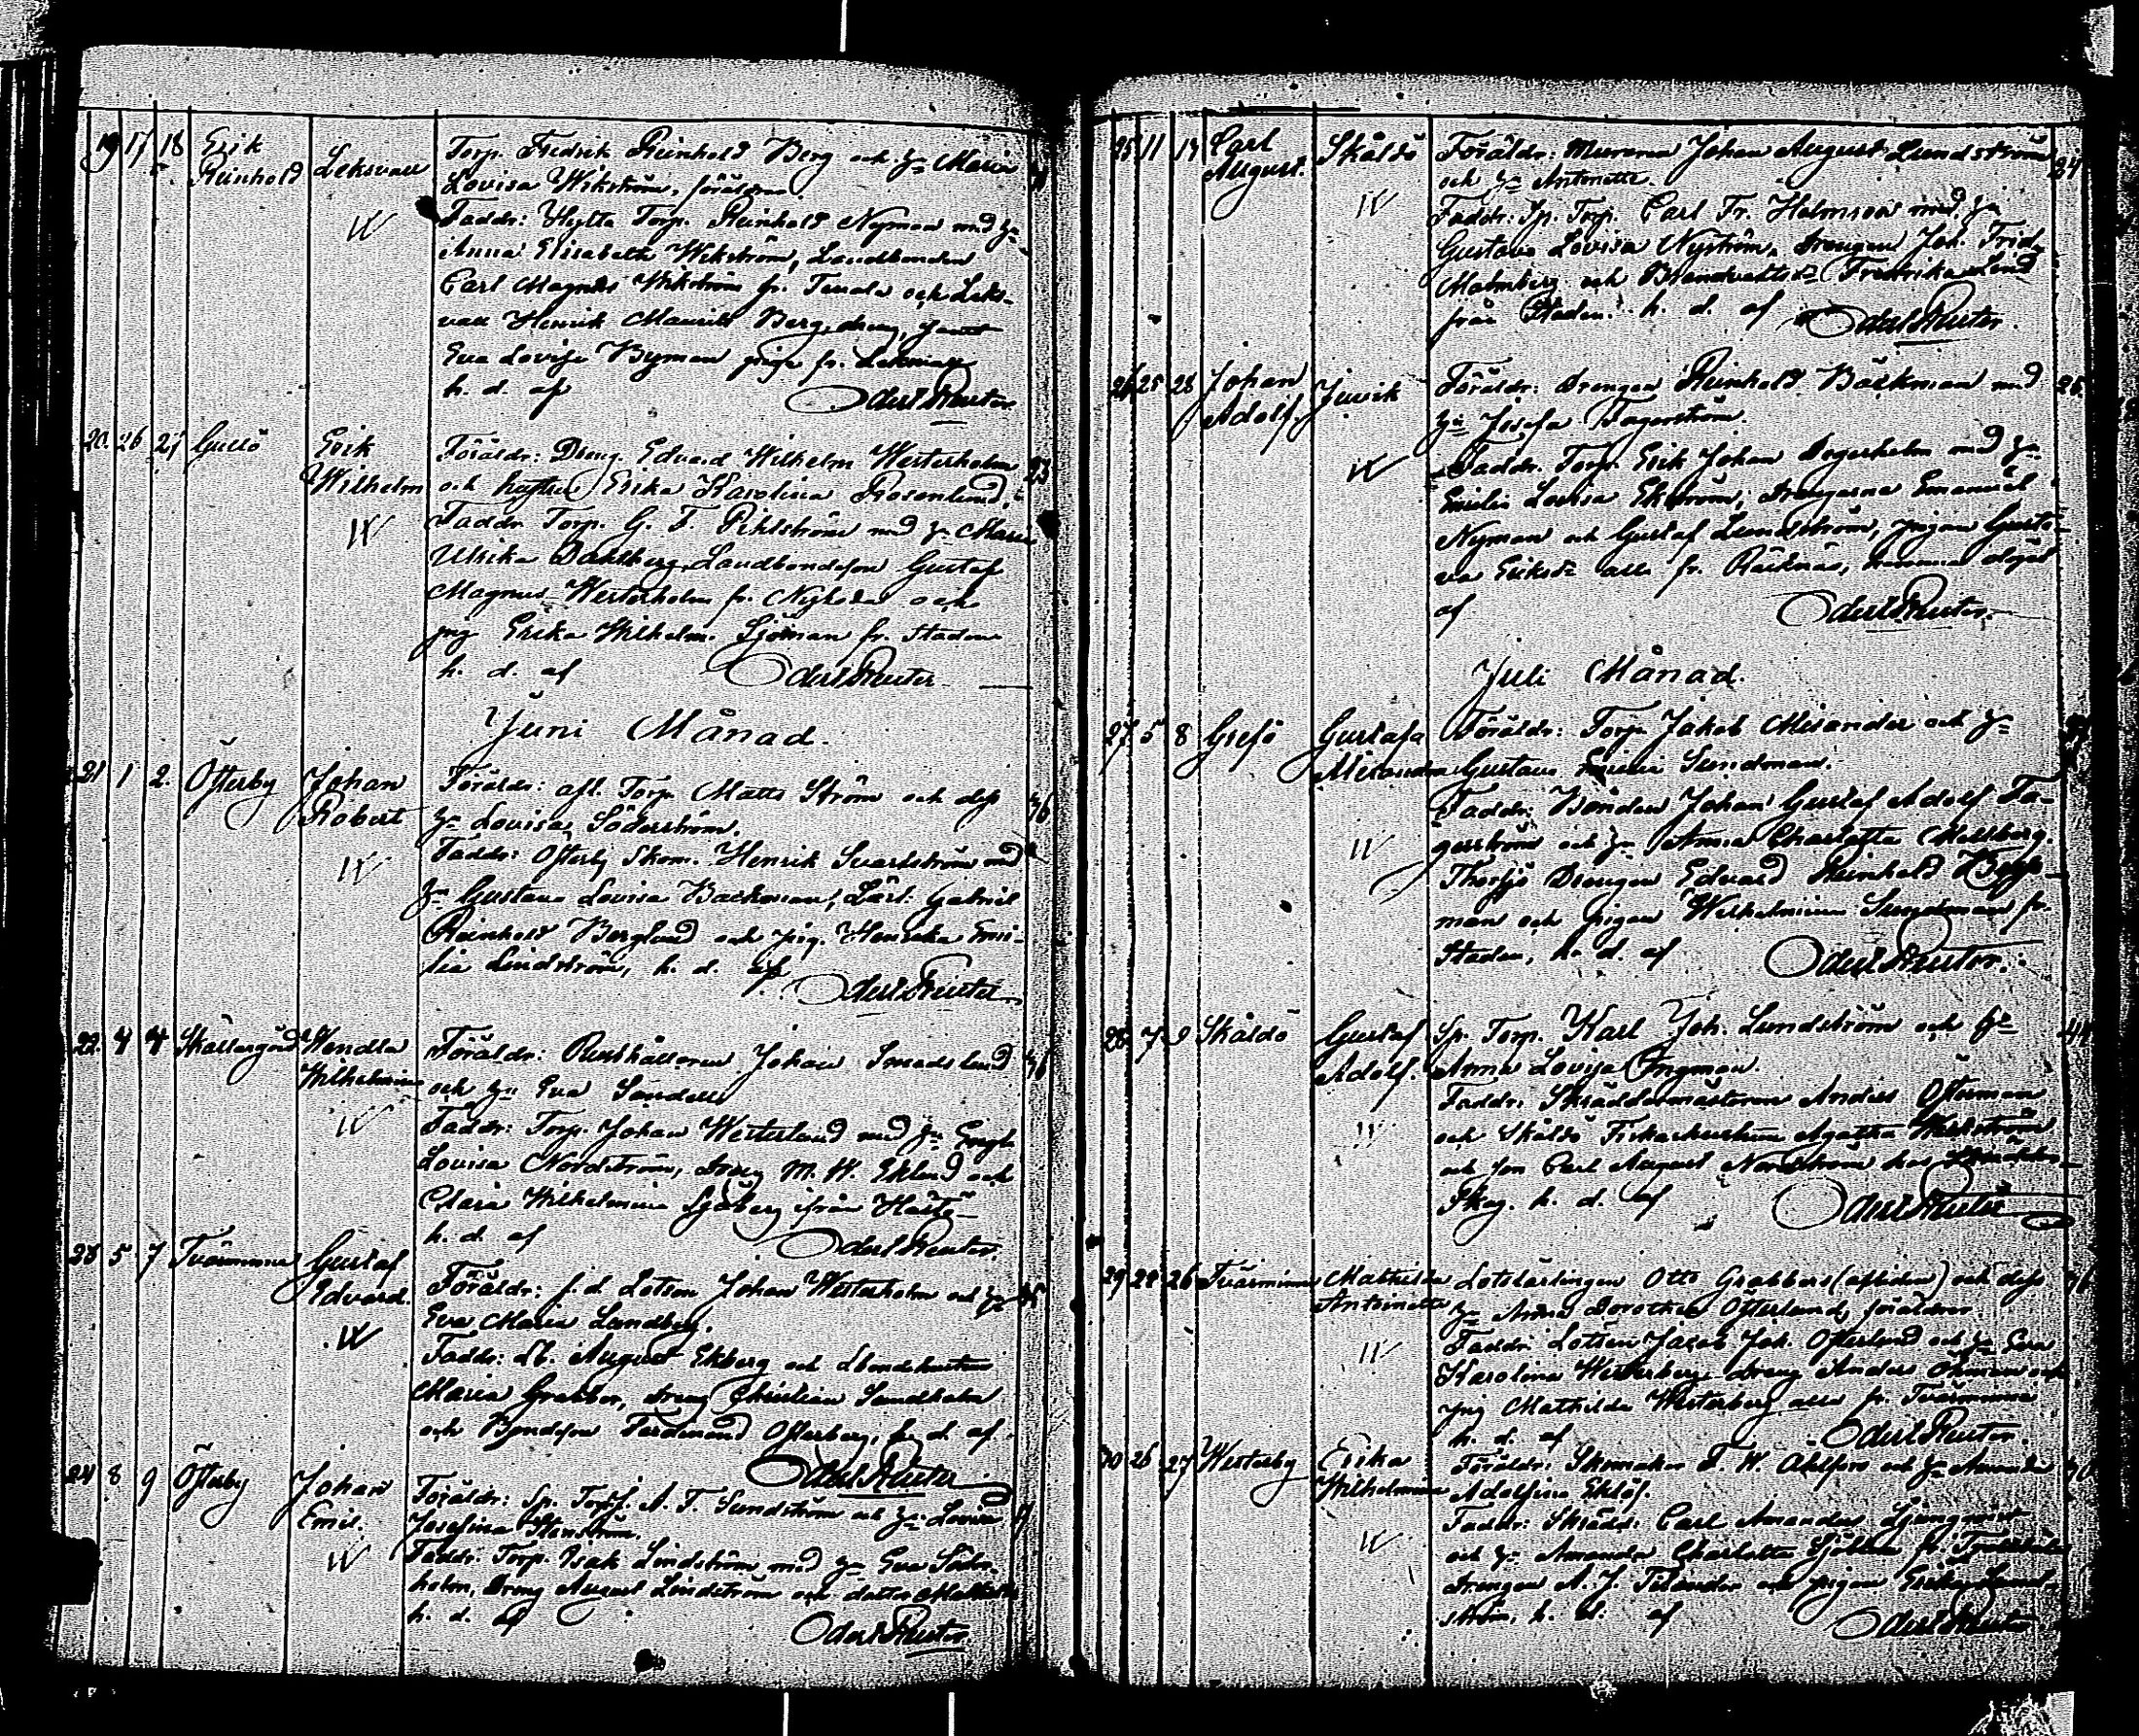 19 17 18 Erik Leksvall Torp. Fredrik Reinhold Berg och h:u Maria
Reinhold Lovisa Wikström, föräldrar
Faddr: Hytte Torp. Reinhold Nyman med h:u
Anna Elisabeth Wikström, Landbonden
Carl Magnus Wikström fr. Tenala och Leks-
vall Henrik Mauritz Berg, dreng, samt
Eva Lovisa Nyman piga fr.
h. d. af Odert Reuter
20. 26 27 Gullö Erik Föräldr: Dreng. Edvard Wilhelm Westerholm 23
Wilhelm och hustru Erika Karolina Rosenlund,
Faddr. Torp. G. F. Pihlström med h:u Maria
Ulrika Dahlberg, Landbondeson Gustaf
Magnus Westerholm fr. och
pig Erika Wilhelm. Sjöman fr. Staden
h. d. af Odert Reuter
Juni Månad.
21 1 2. Österby Johan Föräldr: afl. Torp. Matts Ström och dess 36
Robert h:u Lovisa Söderström.
Faddr: Österby Skom. Henrik Svartström med
h:u Gustava Lovisa Backman, Lärl: Gabriel
Reinhold Berglund och pig. Henrika Emi-
lia Lindström, h. d. af
Odert Reuter
22. 4 4 Skällargård Wendla Föräldr: Johan Smedslund 36
Wilhelmina och h:u Eva Sandell
Faddr: Torp. Johan Westerlund med h:u Engla
Lovisa Nordström, dreng M. W. Eklund och
Clara Wilhelmina Sjöberg ifrån Hästö
h. d. af Odert Reuter
23 5 7 Tvärminne Gustaf Föräldr: f. d. Lotsen Johan Westerholm och h:u 35
Edvard. Eva Maria Landberg.
Faddr: Lb. August Ekberg och Lbondehustru
Maria Grabber, dreng Christian Sundholm
och Bondeson Ferdinand Österberg, h. d. af
Odert Reuter
24 8 9 Österby Johan Föräldr: Sp. Torp. A. F. Sundström och h:u Lovisa
Emil. Josefina Stenström.
Faddr: Torp. Isak Lindström med h:u Eva Söder-
holm, Dreng August Lindström och dotter
h. d. af Odert Reuter
25 11 13 Carl Skåldö Föräldr: Muraren Johan August Lundström 24
August. och h:u Antonette.
Faddr: Sp. Torp. Carl Fr. Holmroos med h:u
Gustava Lovisa Nyström, Drengen Joh. Fridr.
Malmberg och Fredrika Lind
från Staden. h. d. af Odert Reuter
26 25 28 Johan Juvik Föräldr: Drengen Reinhold Bäckman med 25.
Adolf. h:u Josefa Fagerström.
Faddr. Torp. Erik Johan Degerholm med h:u
Emilie Lovisa Ekström, Drengarna Emanuel
Nyman och Gustaf Lundström, pigan Gusta-
va Eriksd:r alla fr. hemma döpt
af Odert Reuter
Juli Månad.
27 5 8 Grefö Gustafa Föräldr: Torp. Jakob Alexander och h:u
Alexandra Gustava Emilia Sundman.
Faddr: Bonden Johan Gustaf Adolf Fa-
gerström och h:u Anna Charlotta Mellberg.
Thorsjö Drengen Edvard Reinhold
man och pigan Wilhelmina Sundman fr.
Staden, h. d. af Odert Reuter
28 7 9 Skåldö Gustaf Sp. Torp. Karl Joh. Lundström och h:u 44
Adolf. Anna Lovisa Öngman.
Faddr. Skräddarmästaren Anders Österman
och Skåldö Fiskarhustrun Agatha
och son Carl August Nordström
Skog. h. d. af Odert Reuter
29 22 26 Tvärminne Mathilda Lotslärlingen Otto Grabbers (afliden) och dess 36
Antoinette h:u Anna Dorothea Österlund, föräldrar
Faddr. Lotsen Jacob Joh. Österlund och h:u Eva
Karolina Westerberg, dreng Anders Öhman och
pig Mathilda Westerberg alla fr. Tvärminne
h. d. af Odert Reuter
30 26 27 Westerby Erika Föräldr: Skomakar F. W. Ahlfors och h:u Amanda
Wilhelmina Adolfina Eklöf.
Faddr: Skrädd: Carl Amandus Ljungqvist
och h:u Amanda Charlotta Sjöblom fr.
Drengen A. J. och pigan Erika Lund-
ström, h. d. af Odert Reuter